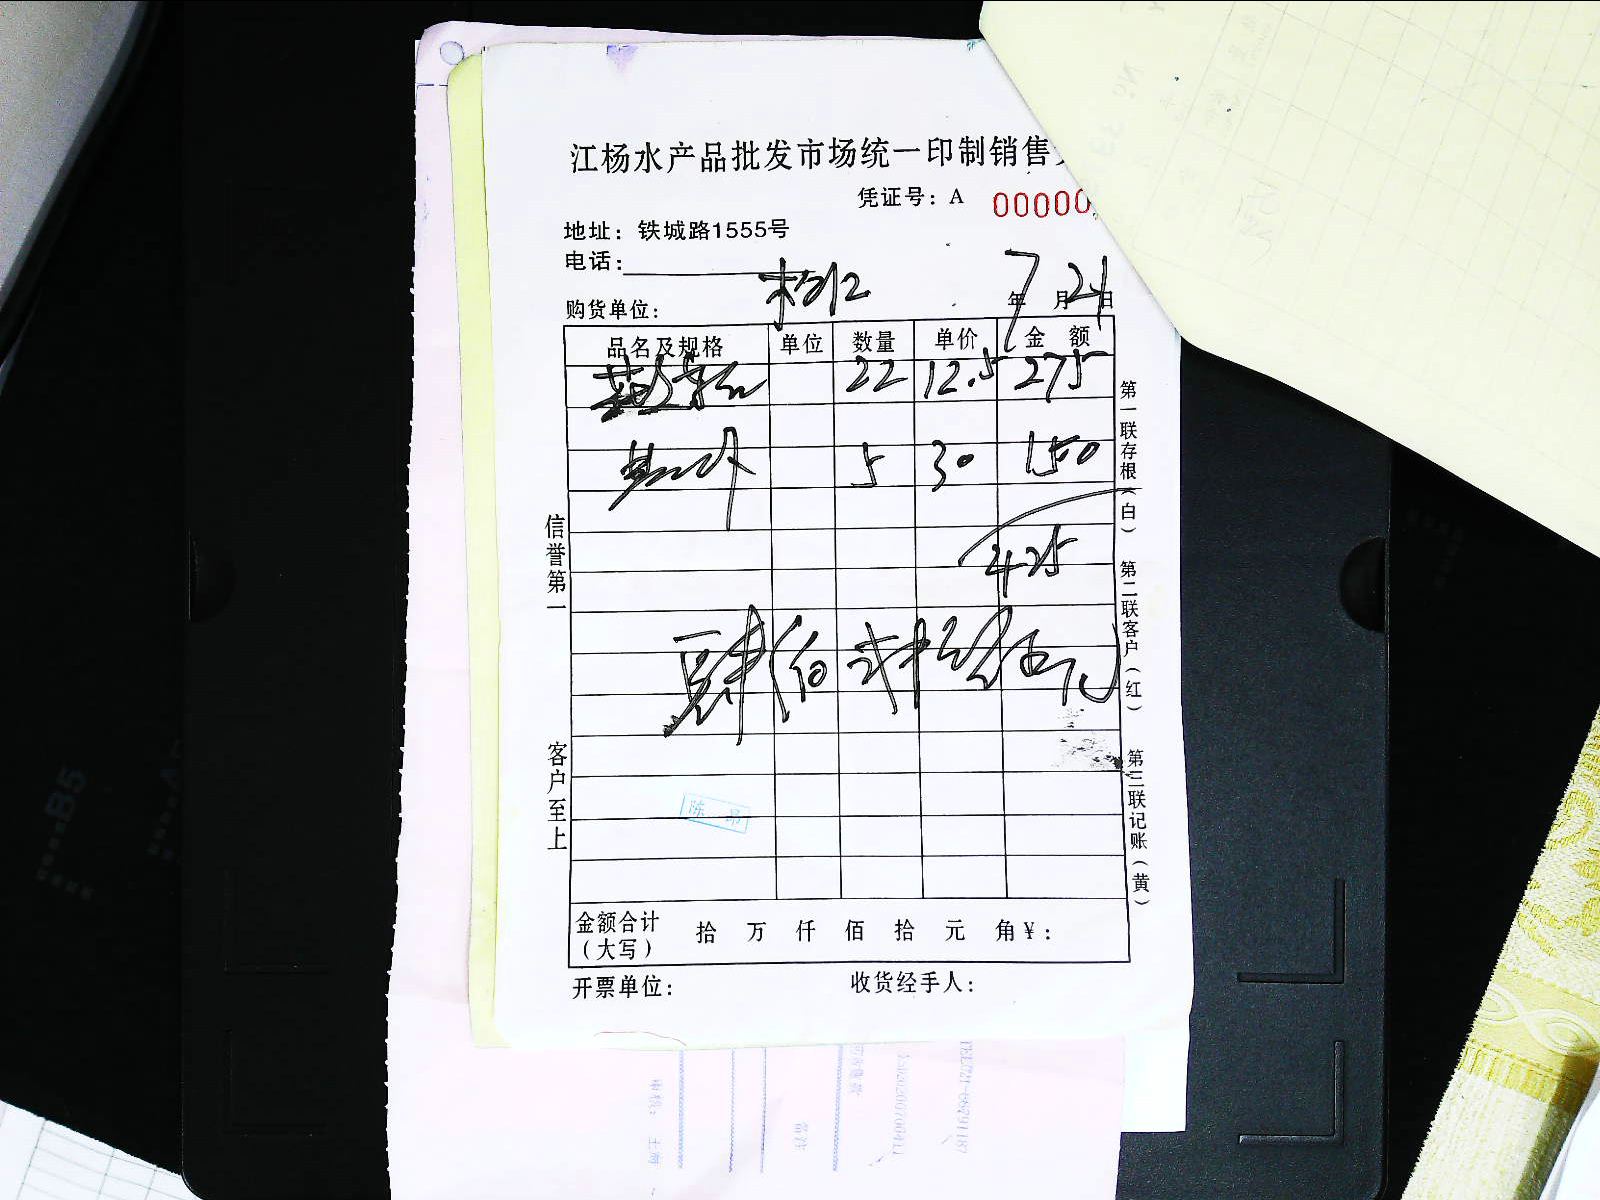 江杨水产品批发市场统一印制销售
凭证号：A 00000
地址：铁城路1555号
电话：
购货单位： 年 7 月 24 日
品名及规格 单位 数量 单价 金额
22 12.5 275
5 30 150
425
肆佰贰拾伍元
信誉第一
客户至上
第一联存根（白）
第二联客户（红）
第三联记账（黄）
陈 昂
金额合计（大写） 拾 万 仟 佰 拾 元 角 ¥：
开票单位： 收货经手人：
B5